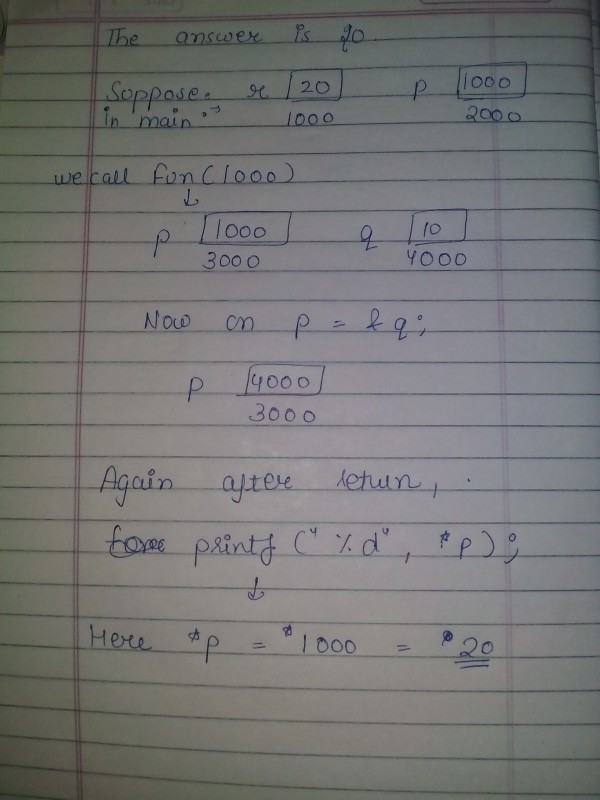 The answer is 20
Suppose: r 20 p 1000
in main :→ 1000 2000
we call fun(1000)
↓
p 1000 q 10
3000 4000
Now on p = & q;
p 4000
3000
Again after return,
printf ("%d", *p);
↓
Here *p = *1000 = 20